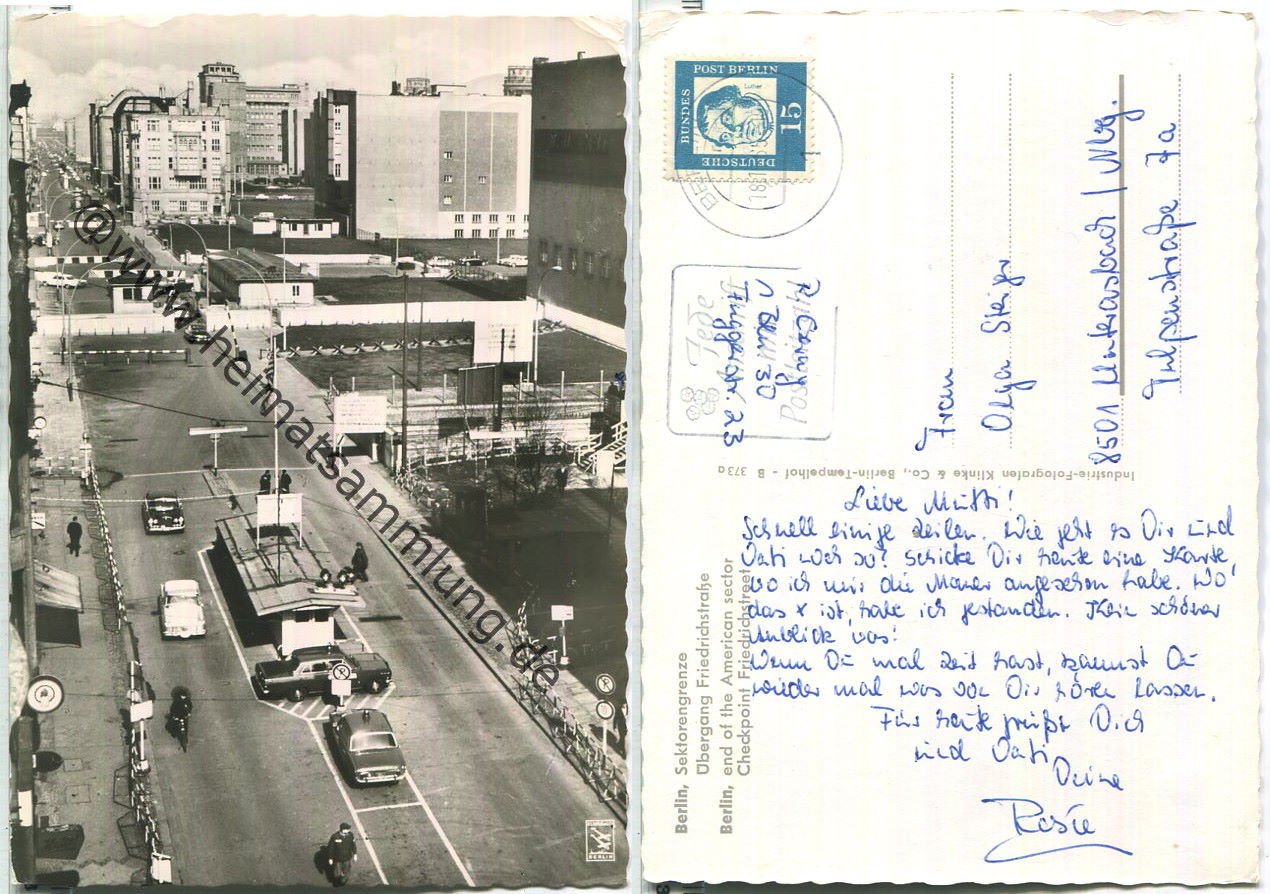 @www.heimatsammlung.de
BERLIN
DEUTSCHE
BUNDES
POST BERLIN
Luther
15
18.1
Jede
Postleitzahl
Berlin 30
23
Frau
Olga Steiger
8501 Unterasbach / Nbg.
Tulpenstraße 7a
Industrie-Fotografen Klinke & Co., Berlin-Tempelhof - B 373a
Berlin, Sektorengrenze
Übergang Friedrichstraße
Berlin, end of the American sector
Checkpoint Friedrichstreet
Liebe Mutti!
Schnell einige Zeilen. Wie geht es Dir und
Vati noch so? Schicke Dir heute eine Karte,
wo ich mir die Mauer angesehen habe. Wo
das x ist, habe ich gestanden. Kein schöner
Anblick was!
Wenn Du mal Zeit hast, kannst Du
wieder mal was von Dir hören lassen.
Für heute grüßt Dich
und Vati
Deine
Rosie